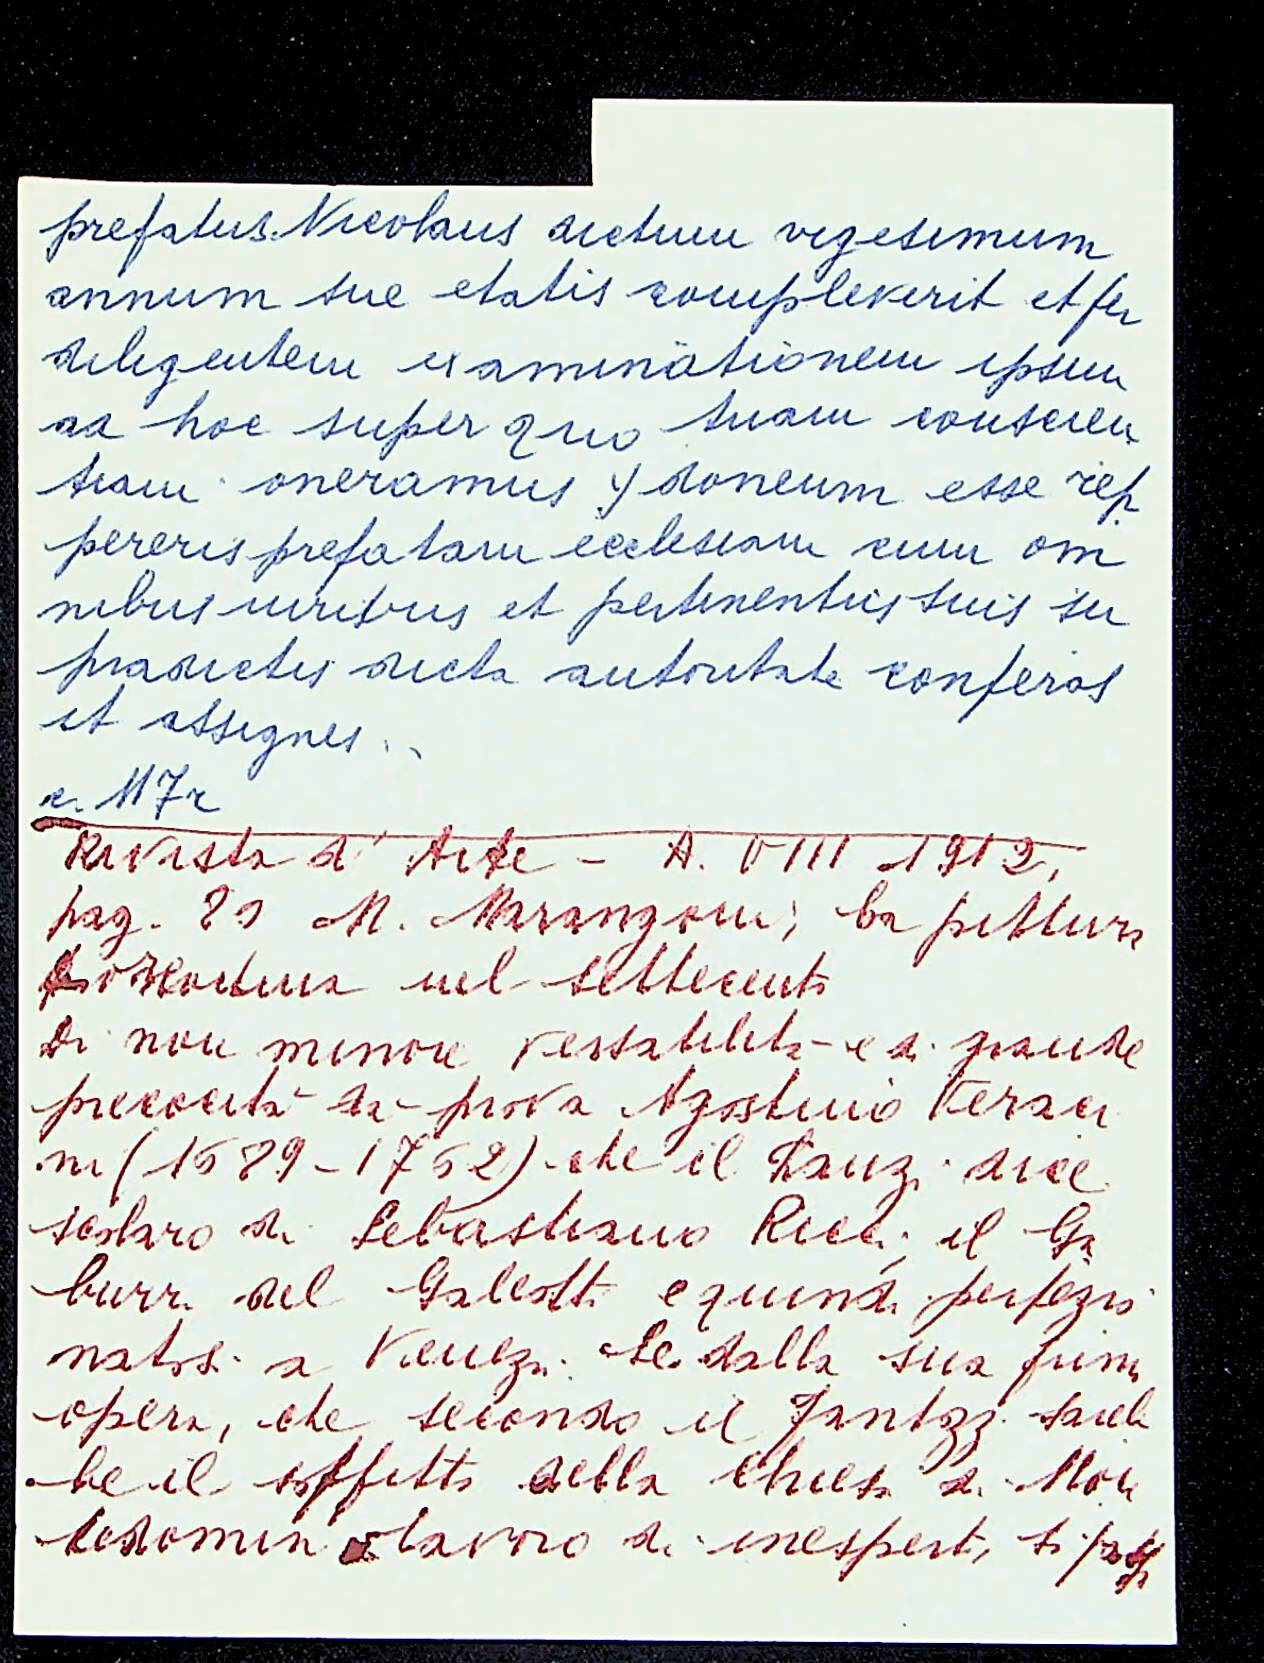 prefatus Nicolaus dictum vigesimum
annum sue etatis compleverit et per
diligentem examinationem ipsum
ad hoc super quo tuam conscien
tiam oneramus ydoneum esse rep
pereris prefatam ecclesiam cum om
nibus iuribus et pertinentiis suis su
pradictis dicta autoritate conferas
et assignes..
c. 117r
Rivista d'Arte - A. VIII 1912,
pag. 80 M. Marangoni; la pittura
fiorentina nel settecento
Di non minore versatilità e di grande
precocità dà prova Agostino Veraci
ni (1689-1762) che il Lanzi dice
scolaro di Sebastiano Ricci, il Ga
burri del Galeotti e quindi perfezio
natosi a Venezia. Se dalla sua prima
opera, che secondo il Fantozzi sareb
be il soffitto della chiesa di Mon
tedomini lavoro di inesperto, si